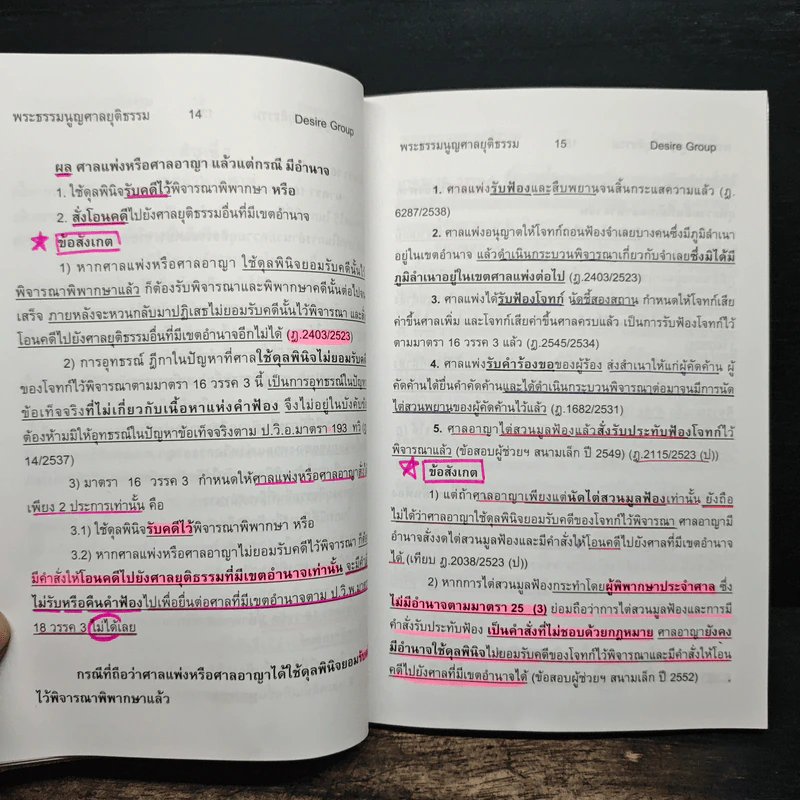 พระธรรมนูญศาลยุติธรรม 14 Desire Group
ผล ศาลแพ่งหรือศาลอาญา แล้วแต่กรณี มีอำนาจ
1. ใช้ดุลพินิจรับคดีไว้พิจารณาพิพากษา หรือ
2. สั่งโอนคดีไปยังศาลยุติธรรมอื่นที่มีเขตอำนาจ
ข้อสังเกต
1) หากศาลแพ่งหรือศาลอาญา ใช้ดุลพินิจยอมรับคดีนั้นไว้
พิจารณาพิพากษาแล้ว ก็ต้องรับพิจารณาและพิพากษาคดีนั้นต่อไป
เสร็จ ภายหลังจะหวนกลับมาปฏิเสธไม่ยอมรับคดีนั้นไว้พิจารณา
โอนคดีไปยังศาลยุติธรรมอื่นที่มีเขตอำนาจอีกไม่ได้ (ฎ.2403/2523)
2) การอุทธรณ์ ฎีกาในปัญหาที่ศาลใช้ดุลพินิจไม่ยอมรับคดี
ของโจทก์ไว้พิจารณาตามมาตรา 16 วรรค 3 นี้ เป็นการอุทธรณ์ในปัญหา
ข้อเท็จจริงที่ไม่เกี่ยวกับเนื้อหาแห่งคำฟ้อง จึงไม่อยู่ในบังคับ
ต้องห้ามมิให้อุทธรณ์ในปัญหาข้อเท็จจริงตาม ป.วิ.อ.มาตรา 193 ทวิ
14/2537)
3) มาตรา 16 วรรค 3 กำหนดให้ศาลแพ่งหรือศาลอาญา
เพียง 2 ประการเท่านั้น คือ
3.1) ใช้ดุลพินิจรับคดีไว้พิจารณาพิพากษา หรือ
3.2) หากศาลแพ่งหรือศาลอาญาไม่ยอมรับคดีไว้พิจารณา
มีคำสั่งให้โอนคดีไปยังศาลยุติธรรมที่มีเขตอำนาจเท่านั้น จะมีคำสั่ง
ไม่รับหรือคืนคำฟ้องไปเพื่อยื่นต่อศาลที่มีเขตอำนาจตาม ป.วิ.พ.
18 วรรค 3 ไม่ได้เลย
กรณีที่ถือว่าศาลแพ่งหรือศาลอาญาได้ใช้ดุลพินิจยอมรับ
ไว้พิจารณาพิพากษาแล้ว
พระธรรมนูญศาลยุติธรรม 15 Desire Group
1. ศาลแพ่งรับฟ้องและสืบพยานจนสิ้นกระแสความแล้ว (ฎ.
6287/2538)
2. ศาลแพ่งอนุญาตให้โจทก์ถอนฟ้องจำเลยบางคนซึ่งมีภูมิลำเนา
อยู่ในเขตอำนาจ แล้วดำเนินกระบวนพิจารณาเกี่ยวกับจำเลยซึ่งมิได้มี
ภูมิลำเนาอยู่ในเขตศาลแพ่งต่อไป (ฎ.2403/2523)
3. ศาลแพ่งได้รับฟ้องโจทก์ นัดชี้สองสถาน กำหนดให้โจทก์เสีย
ค่าขึ้นศาลเพิ่ม และโจทก์เสียค่าขึ้นศาลครบแล้ว เป็นการรับฟ้องโจทก์ไว้
ตามมาตรา 16 วรรค 3 แล้ว (ฎ.2545/2534)
4. ศาลแพ่งรับคำร้องขอของผู้ร้อง ส่งสำเนาให้แก่ผู้คัดค้าน ผู้
คัดค้านได้ยื่นคำคัดค้านและได้ดำเนินกระบวนพิจารณาต่อมาจนมีการนัด
ไต่สวนพยานของผู้คัดค้านไว้แล้ว (ฎ.1682/2531)
5. ศาลอาญาไต่สวนมูลฟ้องแล้วสั่งรับประทับฟ้องโจทก์ไว้
พิจารณาแล้ว (ข้อสอบผู้ช่วยฯ สนามเล็ก ปี 2549) (ฎ.2115/2523 (ป))
ข้อสังเกต
1) แต่ถ้าศาลอาญาเพียงแต่นัดไต่สวนมูลฟ้องเท่านั้น ยังถือ
ไม่ได้ว่าศาลอาญาใช้ดุลพินิจยอมรับคดีของโจทก์ไว้พิจารณา ศาลอาญามี
อำนาจสั่งงดไต่สวนมูลฟ้องและมีคำสั่งให้โอนคดีไปยังศาลที่มีเขตอำนาจ
ได้ (เทียบ ฎ.2038/2523 (ป))
2) หากการไต่สวนมูลฟ้องกระทำโดยผู้พิพากษาประจำศาล ซึ่ง
ไม่มีอำนาจตามมาตรา 25 (3) ย่อมถือว่าการไต่สวนมูลฟ้องและการมี
คำสั่งรับประทับฟ้อง เป็นคำสั่งที่ไม่ชอบด้วยกฎหมาย ศาลอาญายังคง
มีอำนาจใช้ดุลพินิจไม่ยอมรับคดีของโจทก์ไว้พิจารณาและมีคำสั่งให้โอน
คดีไปยังศาลที่มีเขตอำนาจได้ (ข้อสอบผู้ช่วยฯ สนามเล็ก ปี 2552)